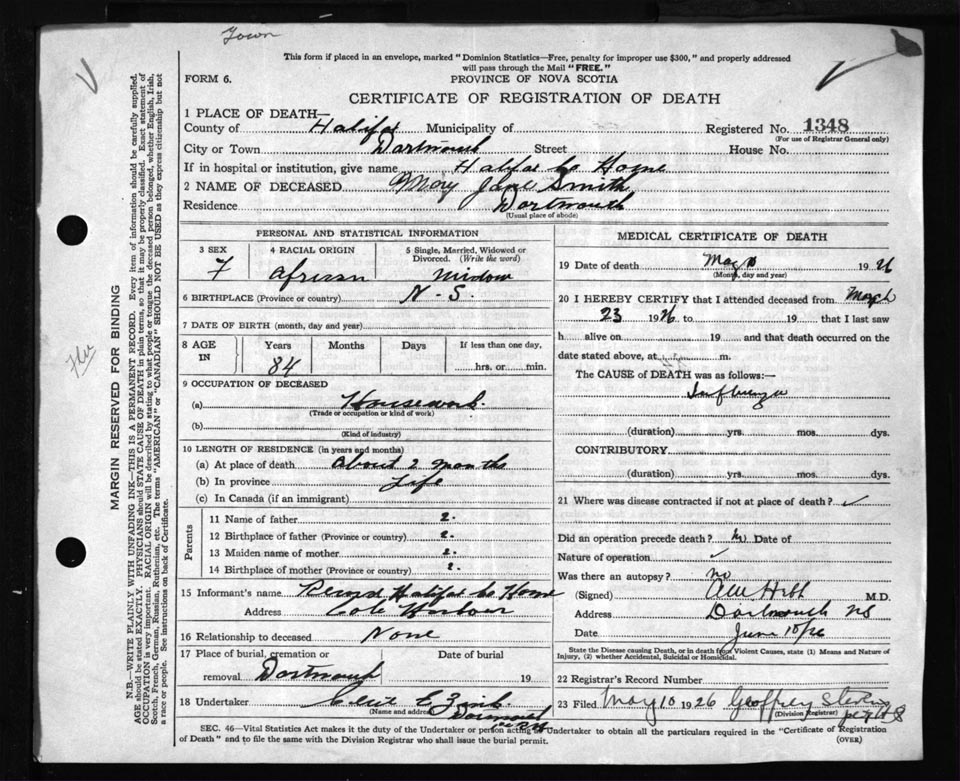 Town
This form if placed in an envelope, marked "Dominion Statistics—Free, penalty for improper use $300," and properly addressed
will pass through the Mail "FREE."
FORM 6.
PROVINCE OF NOVA SCOTIA
CERTIFICATE OF REGISTRATION OF DEATH
1 PLACE OF DEATH—
County of Halifax Municipality of Registered No. 1348
(For use of Registrar General only)
City or Town Dartmouth Street House No.
If in hospital or institution, give name Halifax Co Home
2 NAME OF DECEASED Mary Jane Smith
Residence Dartmouth
(Usual place of abode)
PERSONAL AND STATISTICAL INFORMATION
3 SEX 4 RACIAL ORIGIN 5 Single, Married, Widowed or Divorced. (Write the word)
F African Widow
6 BIRTHPLACE (Province or country) N-S.
7 DATE OF BIRTH (month, day and year)
8 AGE IN Years Months Days If less than one day,
84 hrs. or min.
9 OCCUPATION OF DECEASED
(a) Housework
(Trade or occupation or kind of work)
(b)
(Kind of industry)
10 LENGTH OF RESIDENCE (in years and months)
(a) At place of death About 2 months
(b) In province Life
(c) In Canada (if an immigrant)
Parents
11 Name of father ?
12 Birthplace of father (Province or country) ?
13 Maiden name of mother ?
14 Birthplace of mother (Province or country) ?
15 Informant's name Record Halifax Co Home
Address Cole Harbour
16 Relationship to deceased None
17 Place of burial, cremation or Date of burial
removal Dartmouth 19
18 Undertaker E Zink
(Name and address) Dartmouth
NS
MEDICAL CERTIFICATE OF DEATH
19 Date of death May 1926
(Month, day and year)
20 I HEREBY CERTIFY that I attended deceased from March
23 1926 to 19 that I last saw
h alive on 19 and that death occurred on the
date stated above, at m.
The CAUSE of DEATH was as follows:—
Influenza
(duration) yrs. mos. dys.
CONTRIBUTORY
(duration) yrs. mos. dys.
21 Where was disease contracted if not at place of death?
Did an operation precede death? Date of
Nature of operation
Was there an autopsy? no
(Signed) M.D.
Address Dartmouth NS
Date June 10/26
State the Disease causing Death, or in death from Violent Causes, state (1) Means and Nature of
Injury, (2) whether Accidental, Suicidal or Homicidal.
22 Registrar's Record Number
23 Filed May 10 1926 Geoffrey
(Division Registrar)
SEC. 46—Vital Statistics Act makes it the duty of the Undertaker or person acting as Undertaker to obtain all the particulars required in the "Certificate of Registration
of Death" and to file the same with the Division Registrar who shall issue the burial permit.
(OVER)
MARGIN RESERVED FOR BINDING
Flu
N.B.—WRITE PLAINLY WITH UNFADING INK—THIS IS A PERMANENT RECORD. Every item of information should be carefully supplied.
AGE should be stated EXACTLY. PHYSICIANS should STATE CAUSE OF DEATH in plain terms, so that it may be properly classified. Exact statement of
OCCUPATION is very important. RACIAL ORIGIN will be described by stating to what people or tongue the deceased person belonged, whether English, Irish,
Scotch, French, German, Russian, Ruthenian, etc. The terms "AMERICAN" or "CANADIAN" SHOULD NOT BE USED as they express citizenship but not
a race or people. See instructions on back of Certificate.